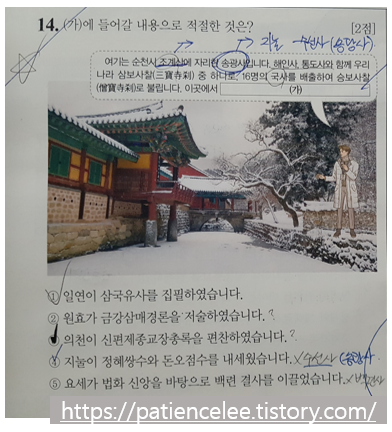 14. (가)에 들어갈 내용으로 적절한 것은? [2점]
지눌 수선사 (송광사)
여기는 순천시 조계산에 자리한 송광사입니다. 해인사, 통도사와 함께 우리
나라 삼보사찰(三寶寺刹) 중 하나로, 16명의 국사를 배출하여 승보사찰
(僧寶寺刹)로 불립니다. 이곳에서 (가)
① 일연이 삼국유사를 집필하였습니다.
② 원효가 금강삼매경론을 저술하였습니다. ?
③ 의천이 신편제종교장총록을 편찬하였습니다. ?
④ 지눌이 정혜쌍수와 돈오점수를 내세웠습니다. 수선사 (송광사
⑤ 요세가 법화 신앙을 바탕으로 백련 결사를 이끌었습니다.
https://patiencelee.tistory.com/